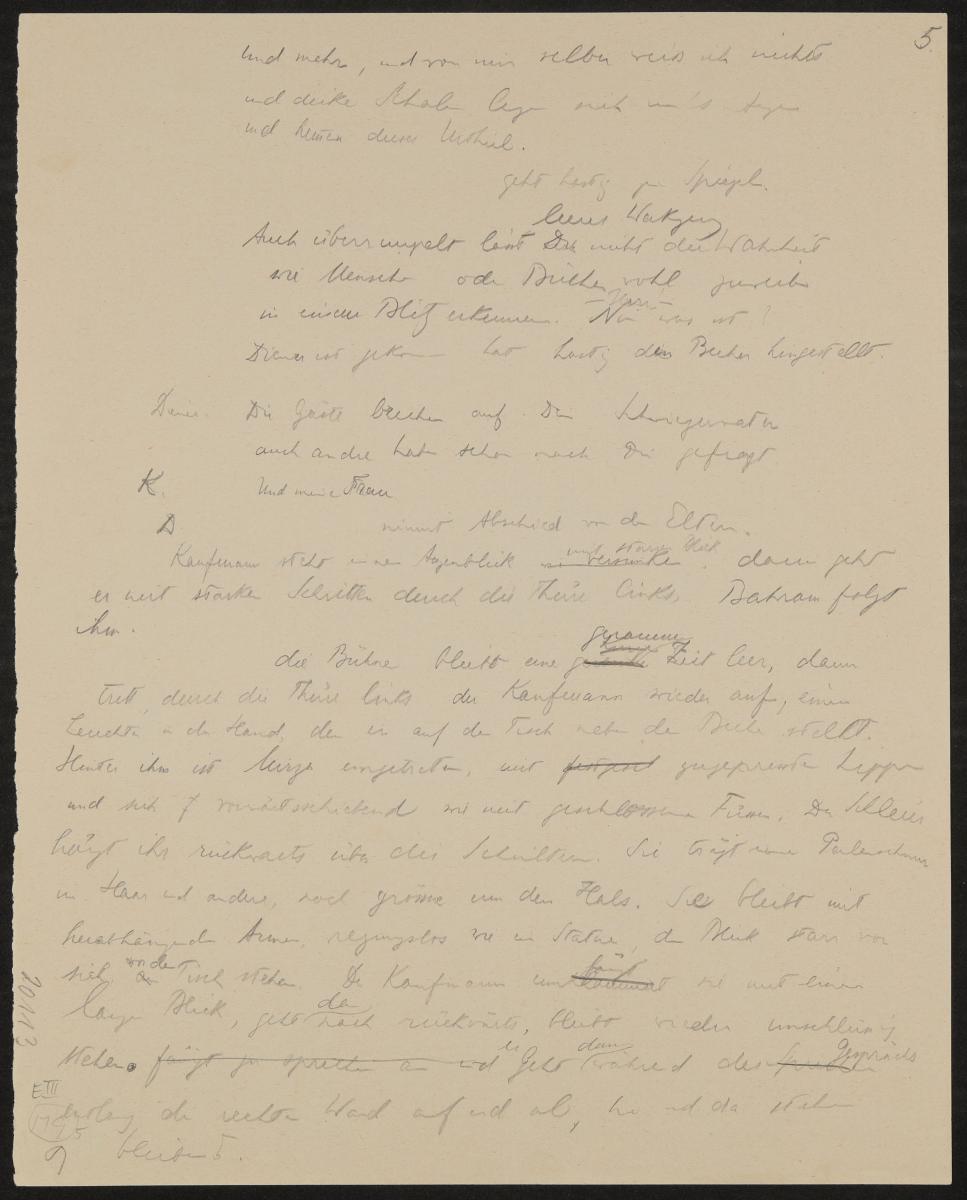 5.
und mehr, und von mir selber weiss ich nichts
und dicke Schalen legen sich um's Auge
und hemmen dieses Urtheil.
geht hastig zum Spiegel.
leeres Werkzeug
Auch überrumpelt lässt Du nicht die Wahrheit
wie Menschen oder Bücher wohl zuweilen
in einem Blitz erkennen. was ist?
Diener ist gekommen hat hastig den Becher hingestellt.
Diener. Die Gäste brechen auf. Dein Schwiegervater
auch andre haben schon nach Dir gefragt
K. Und meine Frau
D nimmt Abschied von den Eltern.
mit starrem Blick
Kaufmann steht einen Augenblick versunken, dann geht
er mit starken Schritten durch die Thüre links, Bahram folgt
ihm.
geraume
die Bühne bleibt eine Zeit leer, dann
tritt durch die Thüre links der Kaufmann wieder auf, einen
Leuchter in der Hand, den er auf den Tisch neben den Becher stellt.
Hinter ihm ist eingetreten, mit zugepressten Lippen
und sich vorwärtsschiebend wie mit geschlossenen Füssen. Der Schleier
hängt ihr rückwärts über die Schultern. Sie trägt eine Perlenschnur
im Haar und andere, noch grössere um den Hals. Sie bleibt mit
herabhängenden Armen, regungslos wie eine Statue, den Blick starr vor
sich, vor dem Tisch stehen. Der Kaufmann umfängt sie mit einem
langen Blick, geht dann nach rückwärts, bleibt wieder unschlüssig
stehen. fängt zu sprechen an und er Geht dann während des Gesprächs
entlang der rechten Wand auf und ab, hie und da stehen
bleibend.
20113
E III